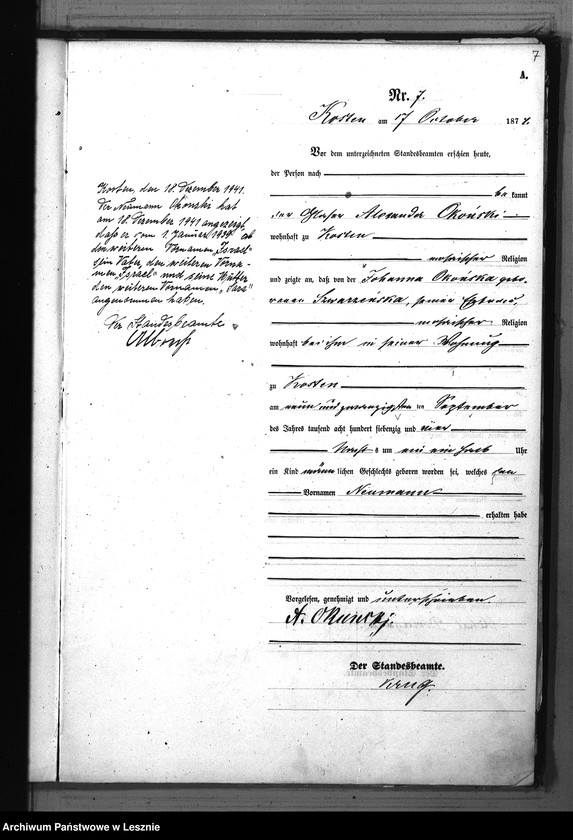 7
A.
Nr. 7.
Kosten am 17 October 1874.
Vor dem unterzeichneten Standesbeamten erschien heute,
der Person nach
be kannt
der Glaser Alexander Okoński
wohnhaft zu Kosten
mosaischer Religion
und zeigte an, daß von der Johanna Okońska gebo-
renen seiner Ehefrau
mosaischer Religion
wohnhaft bei ihm in seiner Wohnung
zu Kosten
am neun und zwanzigsten ten September
des Jahres tausend acht hundert siebenzig und vier
Nachts um ein ein halb Uhr
ein Kind männlichen Geschlechts geboren worden sei, welches den
Vornamen Neumann
erhalten habe
Vorgelesen, genehmigt und unterschrieben.
A. Okunskj.
Der Standesbeamte.
Krug.
Kosten, den 18. Dezember 1941.
Der Neumann Okonski hat
am 18. Dezember 1941 angezeigt,
daß er vom 1. Januar 1939 ab
den weiteren Vornamen „Israel“
sein Vater, den weiteren Vorna-
men „Israel“ und seine Mutter
den weiteren Vornamen „Sara“
angenommen haben.
Der Standesbeamte
Archiwum Państwowe w Lesznie